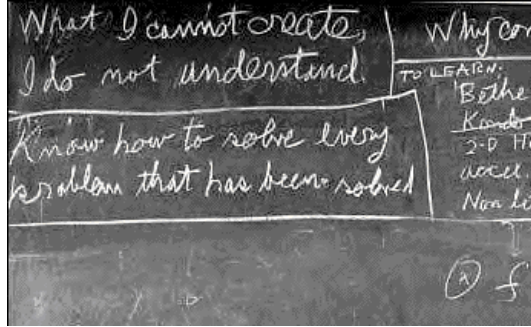 What I cannot create,
I do not understand.
Know how to solve every
problem that has been solved
Why con
TO LEARN:
Bethe
Kondo
2-D H
accel.
Non li
f